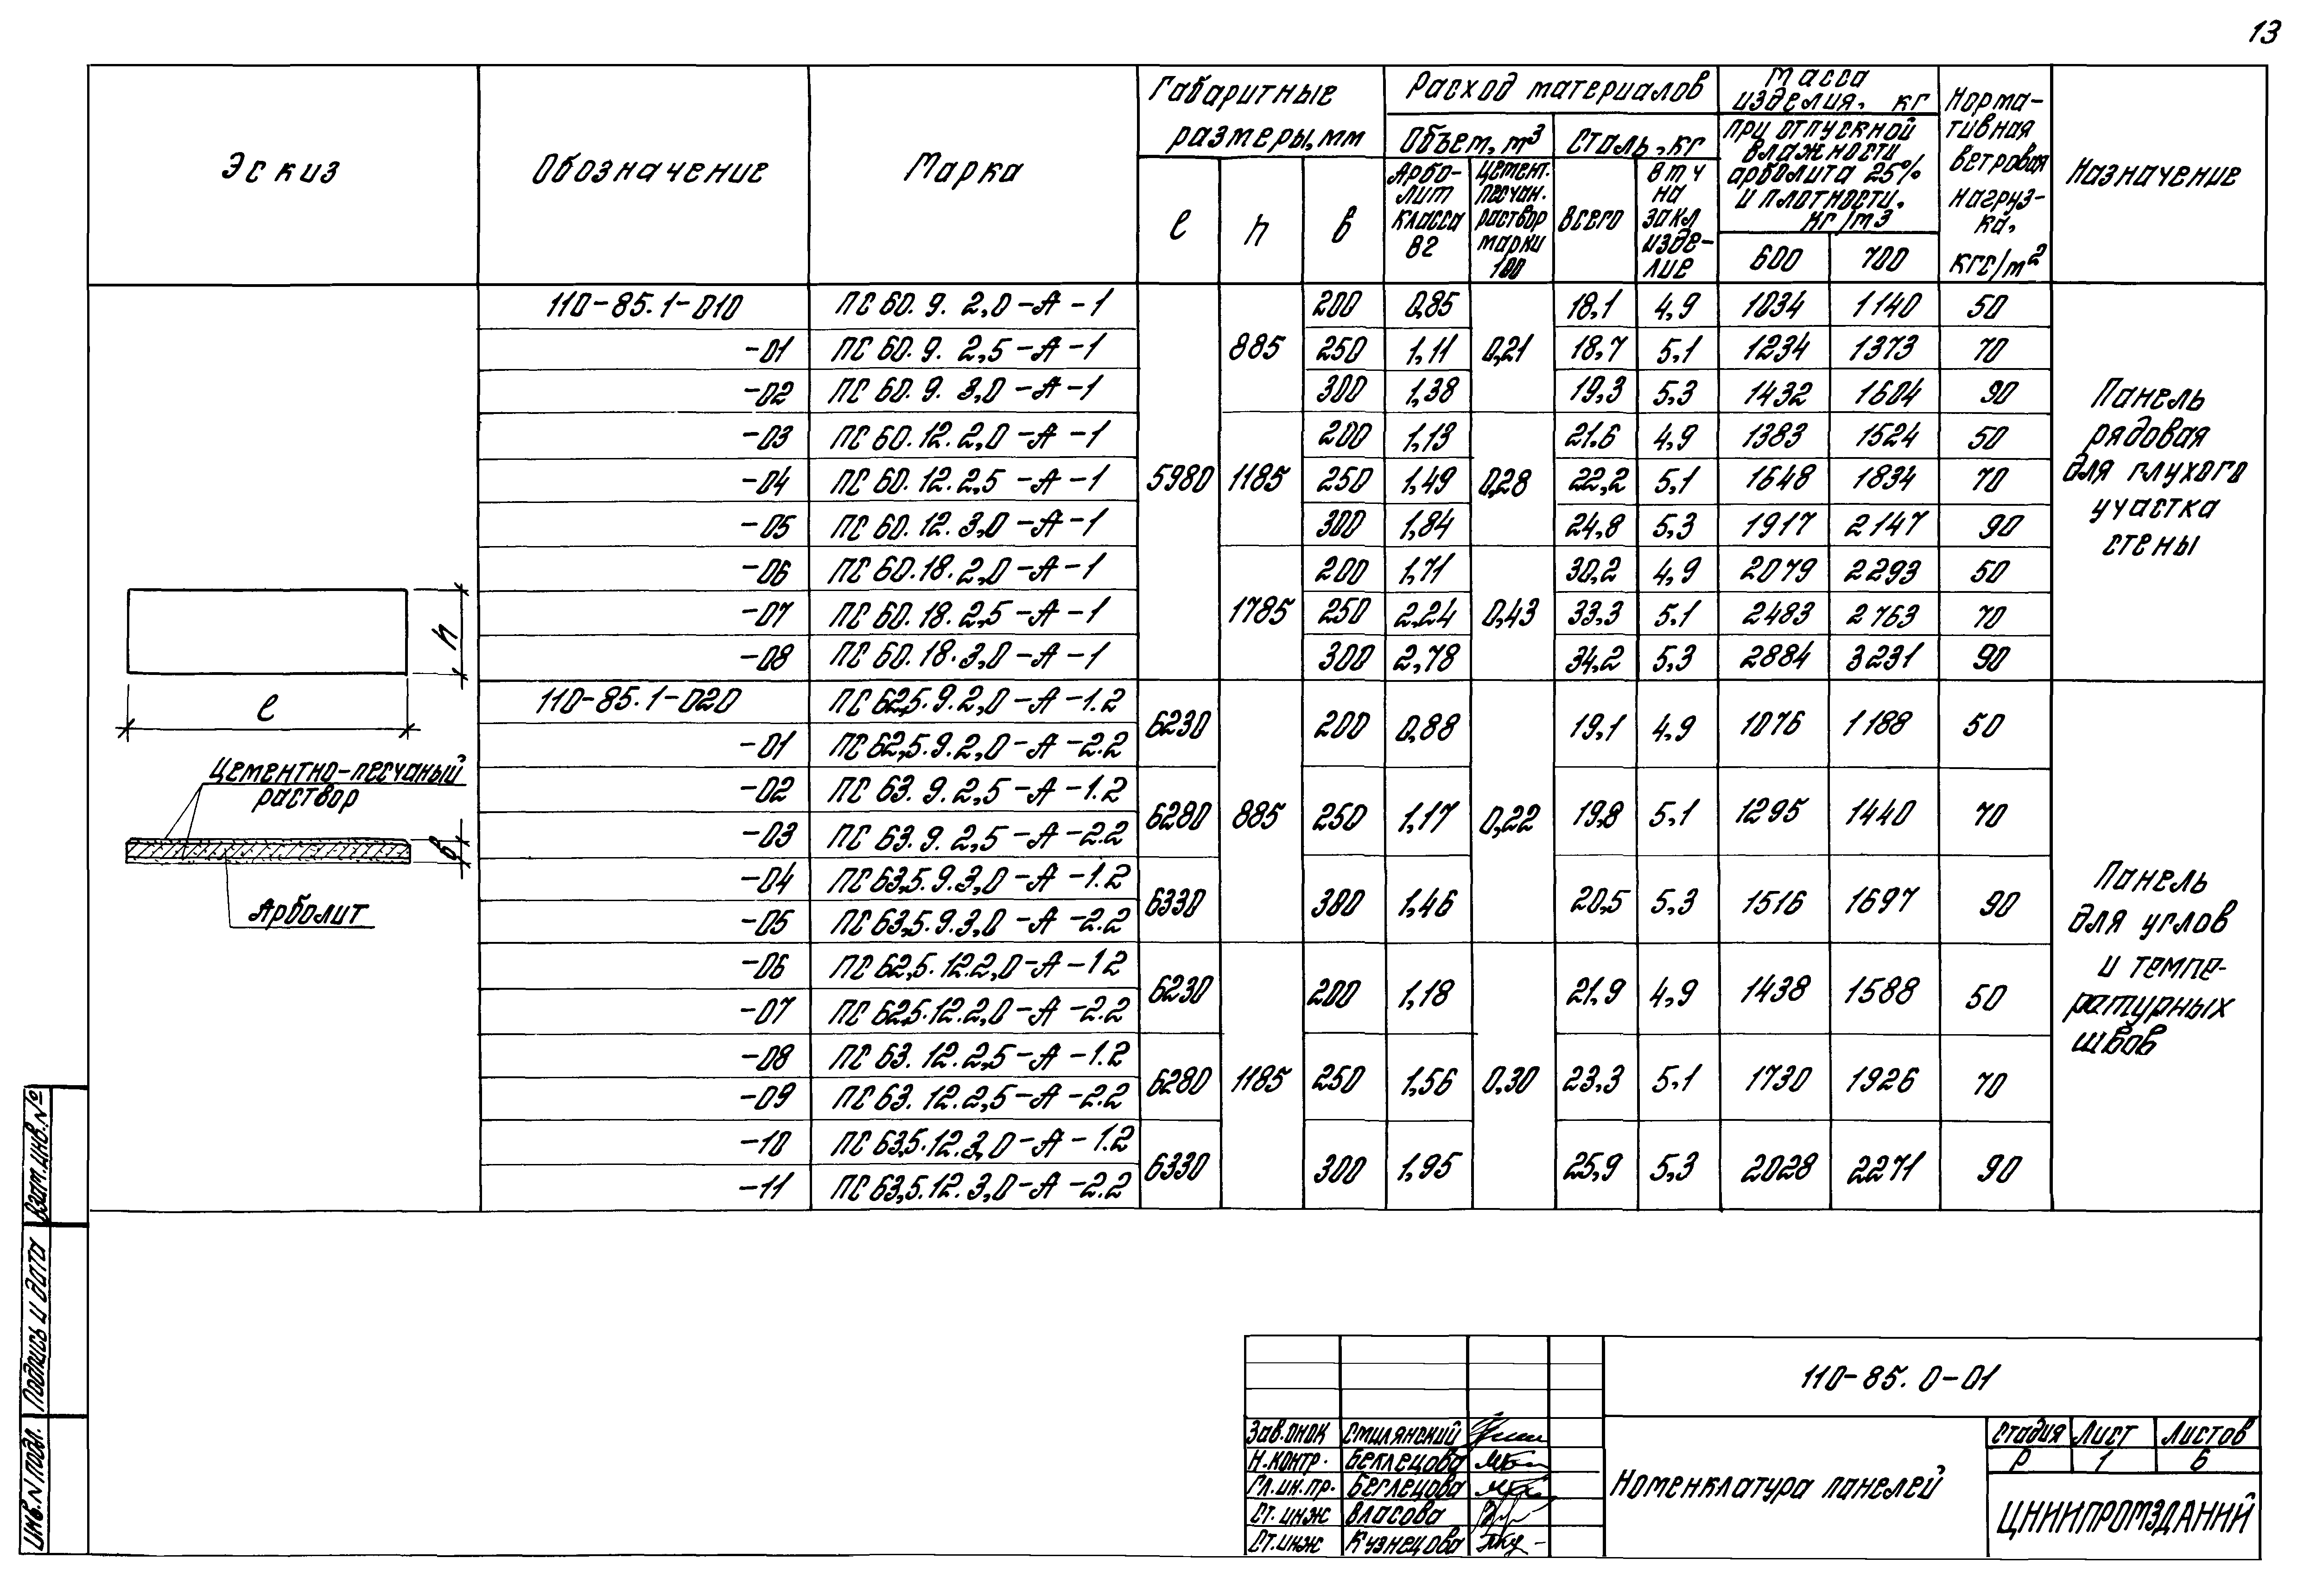 13
Эскиз
Обозначение
Марка
Габаритные
размеры, мм
ℓ
h
в
Расход материалов
Объем, м3
Сталь, кг
Арбо-
лит
класса
В2
Цемент.
песчан.
раствор
марки
100
всего
в т ч
на
закл
изде-
лие
Масса
изделия, кг
при отпускной
влажности
арболита 25%
и плотности,
кг/м3
600
700
Норма-
тивная
ветровая
нагруз-
ка,
кгс/м2
Назначение
110-85.1-010 ПС 60. 9. 2,0-А-1 200 0,85 18,1 4,9 1034 1140 50
-01 ПС 60. 9. 2,5-А-1 885 250 1,11 0,21 18,7 5,1 1234 1373 70
-02 ПС 60. 9. 3,0-А-1 300 1,38 19,3 5,3 1432 1604 90
-03 ПС 60.12.2,0-А-1 200 1,13 21.6 4,9 1383 1524 50
-04 ПС 60.12.2,5-А-1 5980 1185 250 1,49 0,28 22,2 5,1 1648 1834 70
-05 ПС 60.12.3,0-А-1 300 1,84 24,8 5,3 1917 2147 90
-06 ПС 60.18.2,0-А-1 200 1,71 30,2 4,9 2079 2293 50
-07 ПС 60.18.2,5-А-1 1785 250 2,24 0,43 33,3 5.1 2483 2763 70
-08 ПС 60.18.3,0-А-1 300 2,78 34,2 5,3 2884 3231 90
Панель
рядовая
для глухого
участка
стены
110-85.1-020 ПС 62,5.9.2,0-А-1.2
-01 ПС 62,5.9.2,0-А-2.2
6230 200 0,88 19,1 4,9 1076 1188 50
-02 ПС 63. 9. 2,5-А-1.2
-03 ПС 63. 9. 2,5-А-2.2
6280 885 250 1,17 0,22 19,8 5.1 1295 1440 70
-04 ПС 63,5.9.3,0-А-1.2
-05 ПС 63,5.9.3,0-А-2.2
6330 300 1,46 20,5 5,3 1516 1697 90
-06 ПС 62,5.12.2,0-А-12
-07 ПС 62,5.12.2,0-А-2.2
6230 200 1,18 21,9 4,9 1438 1588 50
-08 ПС 63. 12.2,5-А-1.2
-09 ПС 63. 12.2,5-А-2.2
6280 1185 250 1,56 0,30 23,3 5,1 1730 1926 70
-10 ПС 63,5.12.3,0-А-1.2
-11 ПС 63,5.12.3,0-А-2.2
6330 300 1,95 25,9 5,3 2028 2271 90
Панель
для углов
и темпе-
ратурных
швов
h
ℓ
Цементно-песчаный
раствор
в
Арболит
Взам.инв.№
Подпись и дата
Инв.N подл.
110-85. 0-01
Зав.ОНОК Смилянский
Н.контр. Беглецова
Гл.ин.пр. Беглецова
Ст. инж Власова
Ст.инж Кузнецова
Номенклатура панелей
Стадия Лист Листов
Р 1 6
ЦНИИПРОМЗДАНИЙ